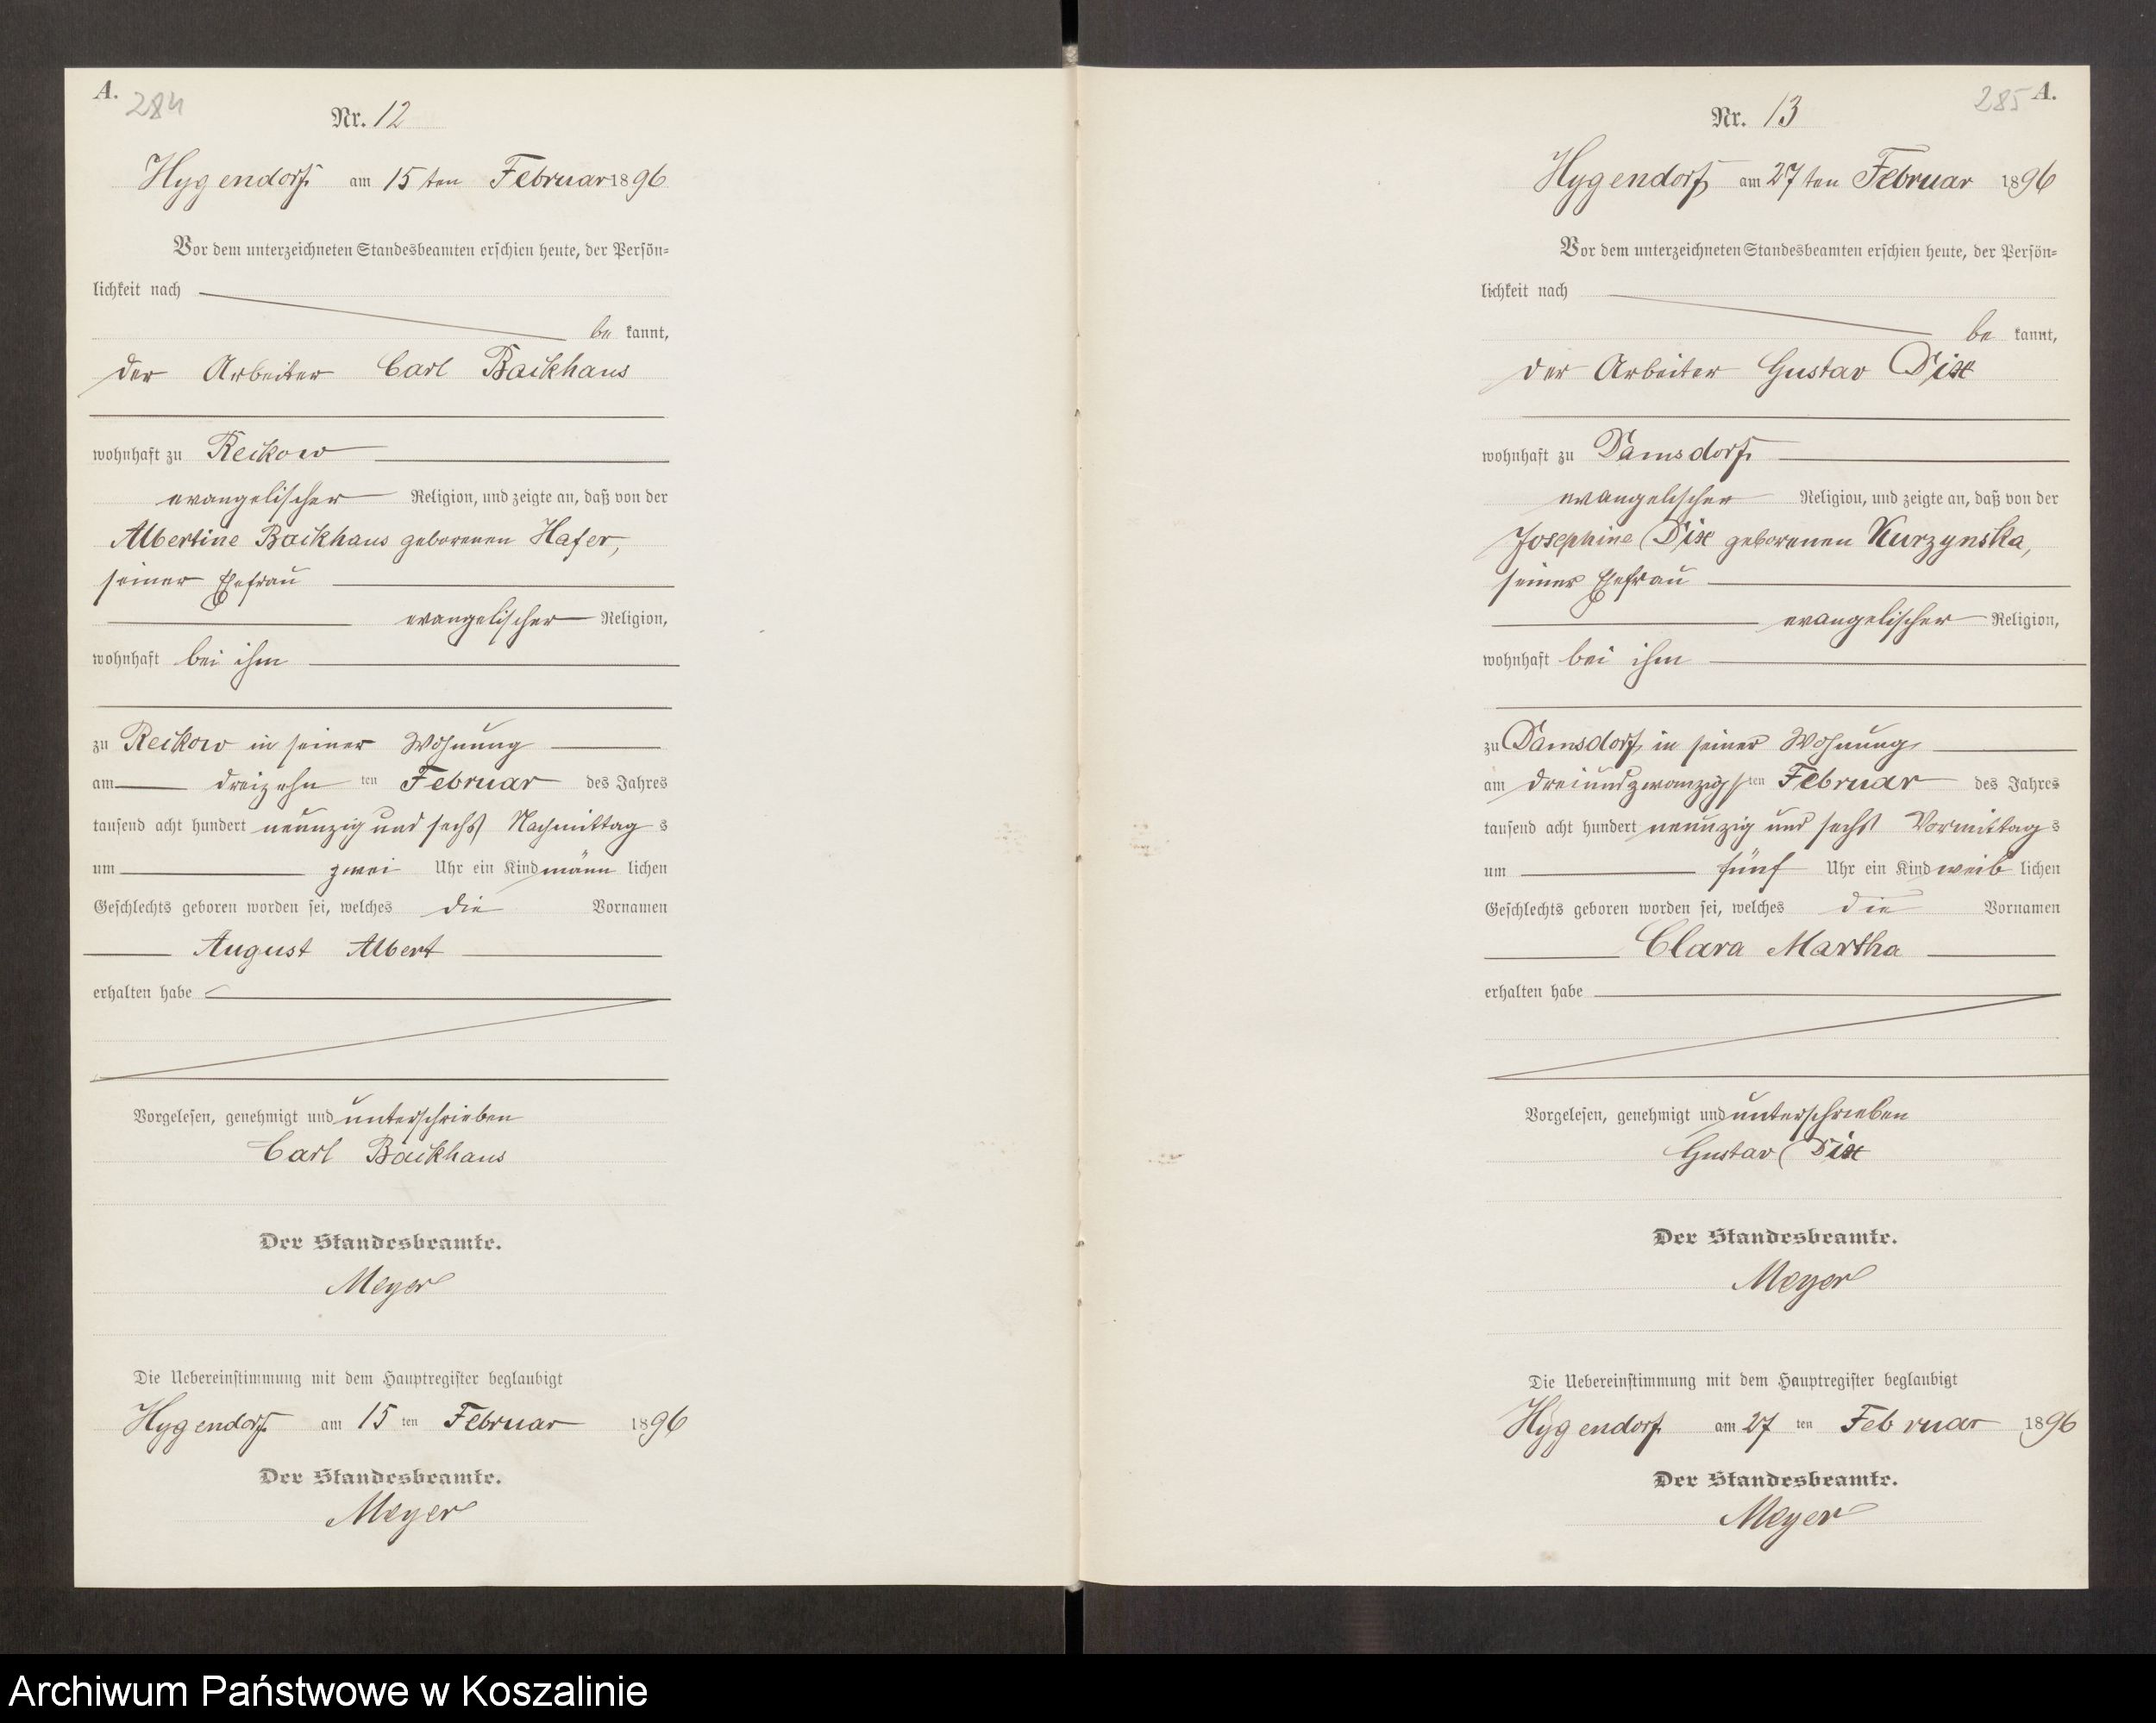 A.
284
Nr. 12
Hygendorf am 15 ten Februar 1896
Vor dem unterzeichneten Standesbeamten erschien heute, der Persön=
lichkeit nach
be kannt,
der Arbeiter Carl Backhaus
wohnhaft zu Reckow
evangelischer Religion, und zeigte an, daß von der
Albertine Backhaus geborenen Hafer,
seiner Ehefrau
evangelischer Religion,
wohnhaft bei ihm
zu Reckow in seiner Wohnung
am dreizehn ten Februar des Jahres
tausend acht hundert neunzig und sechs Nachmittag s
um zwei Uhr ein Kind männ lichen
Geschlechts geboren worden sei, welches die Vornamen
August Albert
erhalten habe
Vorgelesen, genehmigt und unterschrieben
Carl Backhaus
Der Standesbeamte.
Meyer
Die Uebereinstimmung mit dem Hauptregister beglaubigt
Hygendorf am 15 ten Februar 1896
Der Standesbeamte.
Meyer
285 A.
Nr. 13
Hygendorf am 27 ten Februar 1896
Vor dem unterzeichneten Standesbeamten erschien heute, der Persön=
lichkeit nach
be kannt,
der Arbeiter Gustav Dix
wohnhaft zu Damsdorf
evangelischer Religion, und zeigte an, daß von der
Josephine Dix geborenen Kurzynska,
seiner Ehefrau
evangelischer Religion,
wohnhaft bei ihm
zu Damsdorf in seiner Wohnung
am dreiundzwanzigs ten Februar des Jahres
tausend acht hundert neunzig und sechs Vormittag s
um fünf Uhr ein Kind weib lichen
Geschlechts geboren worden sei, welches die Vornamen
Clara Martha
erhalten habe
Vorgelesen, genehmigt und unterschrieben
Gustav Dix
Der Standesbeamte.
Meyer
Die Uebereinstimmung mit dem Hauptregister beglaubigt
Hygendorf am 27 ten Februar 1896
Der Standesbeamte.
Meyer
Archiwum Państwowe w Koszalinie